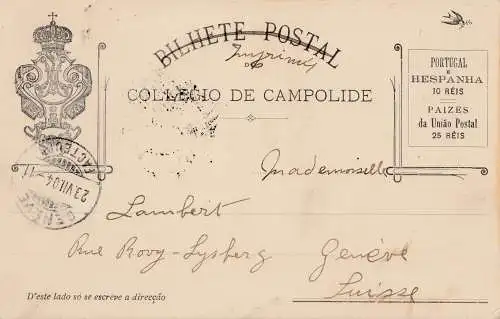 BILHETE POSTAL
Imprimé
DO
COLLEGIO DE CAMPOLIDE
PORTUGAL
E
HESPANHA
10 RÉIS
PAIZES
da União Postal
25 RÉIS
Mademoiselle
Lambert
Rue Rovy-Lysberg Genève
Suisse
GENÈVE
23.VII.04-11
FACTEURS
D'este lado só se escreve a direcção